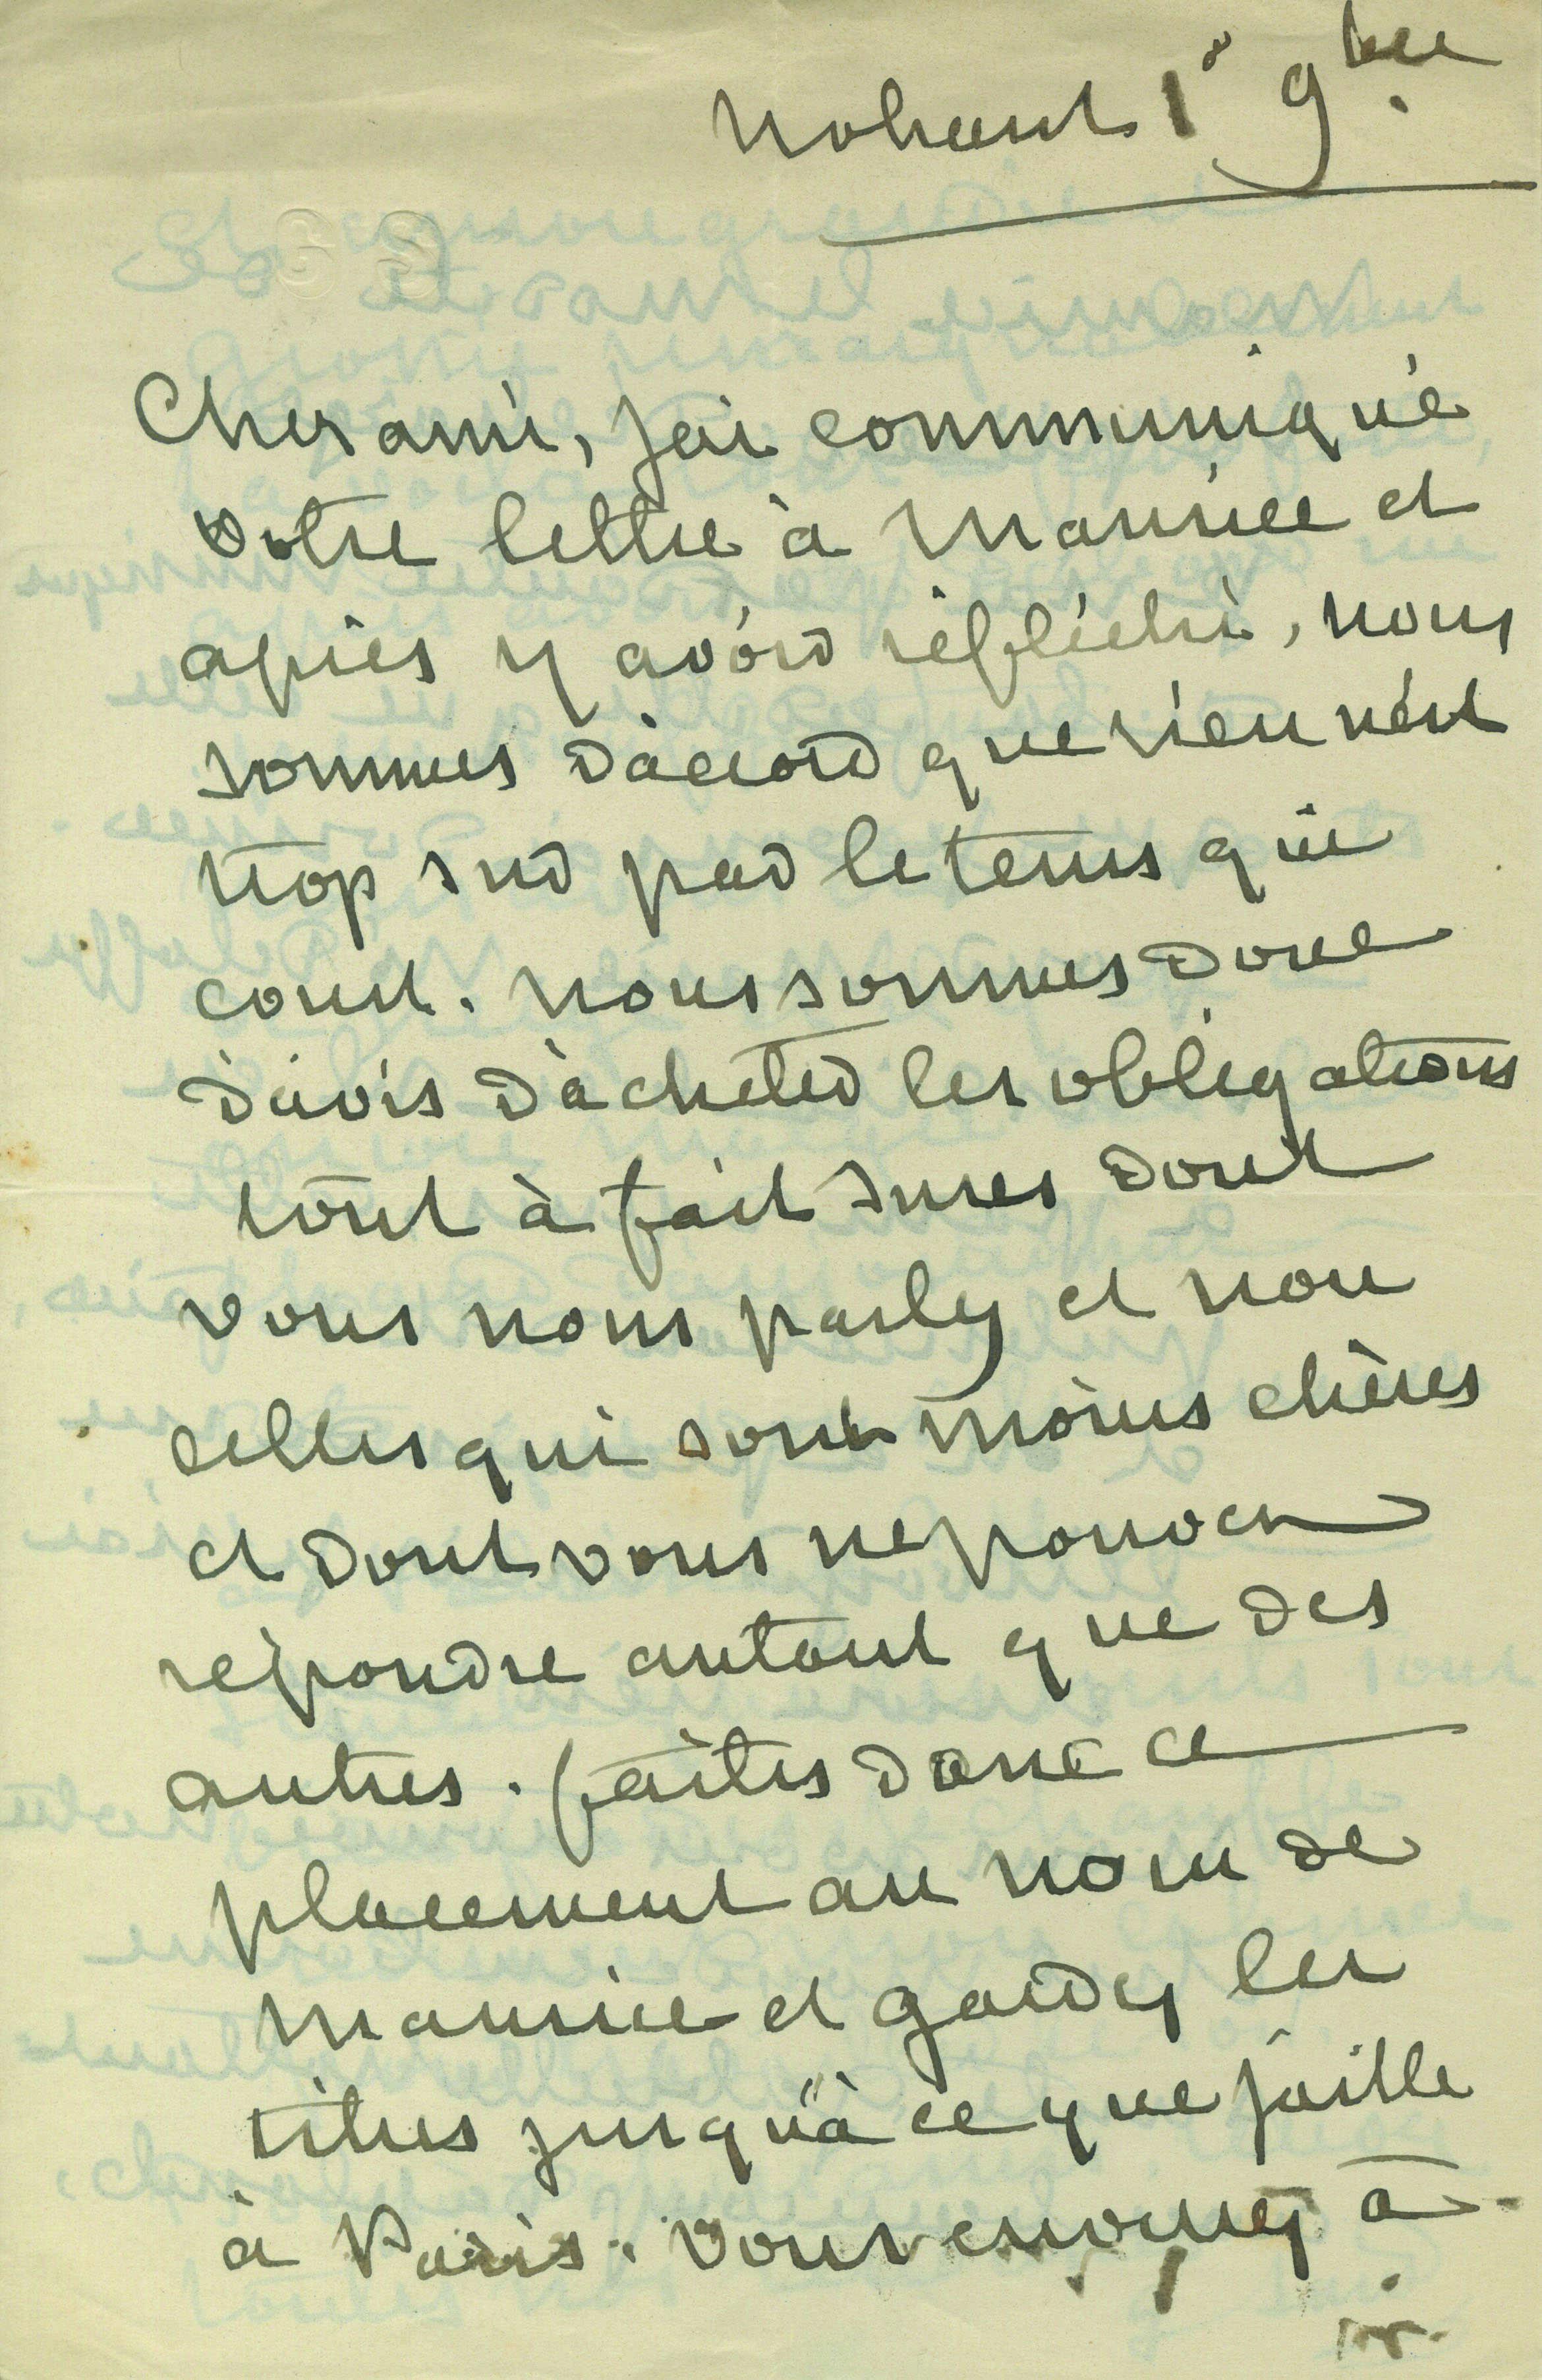 Nohant 1er 9bre
Cher ami, j'ai communiqué
votre lettre à Maurice et
après y avoir réfléchi, nous
sommes d'accord que rien n'est
trop sur par le tems qui
court. Nous sommes donc
d'avis d'acheter les obligations
tout à fait sures dont
vous nous parlez et non
celles qui sont moins chères
et dont vous ne pouvez
répondre autant que des
autres. faites donc ce
placement au nom de
Maurice et gardez les
titres jusqu'à ce que j'aille
à Paris. Vous enverrez à